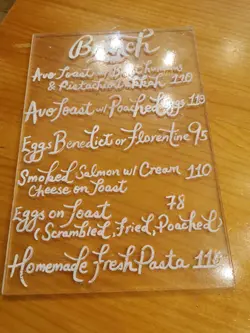 Brunch
Avo Toast w/ Beet Hummus
& Pistachio Dukkah 120
Avo Toast w/ Poached Eggs 110
Eggs Benedict or Florentine 95
Smoked Salmon w/ Cream 110
Cheese on Toast
Eggs on Toast 78
(Scrambled, Fried, Poached
Homemade Fresh Pasta